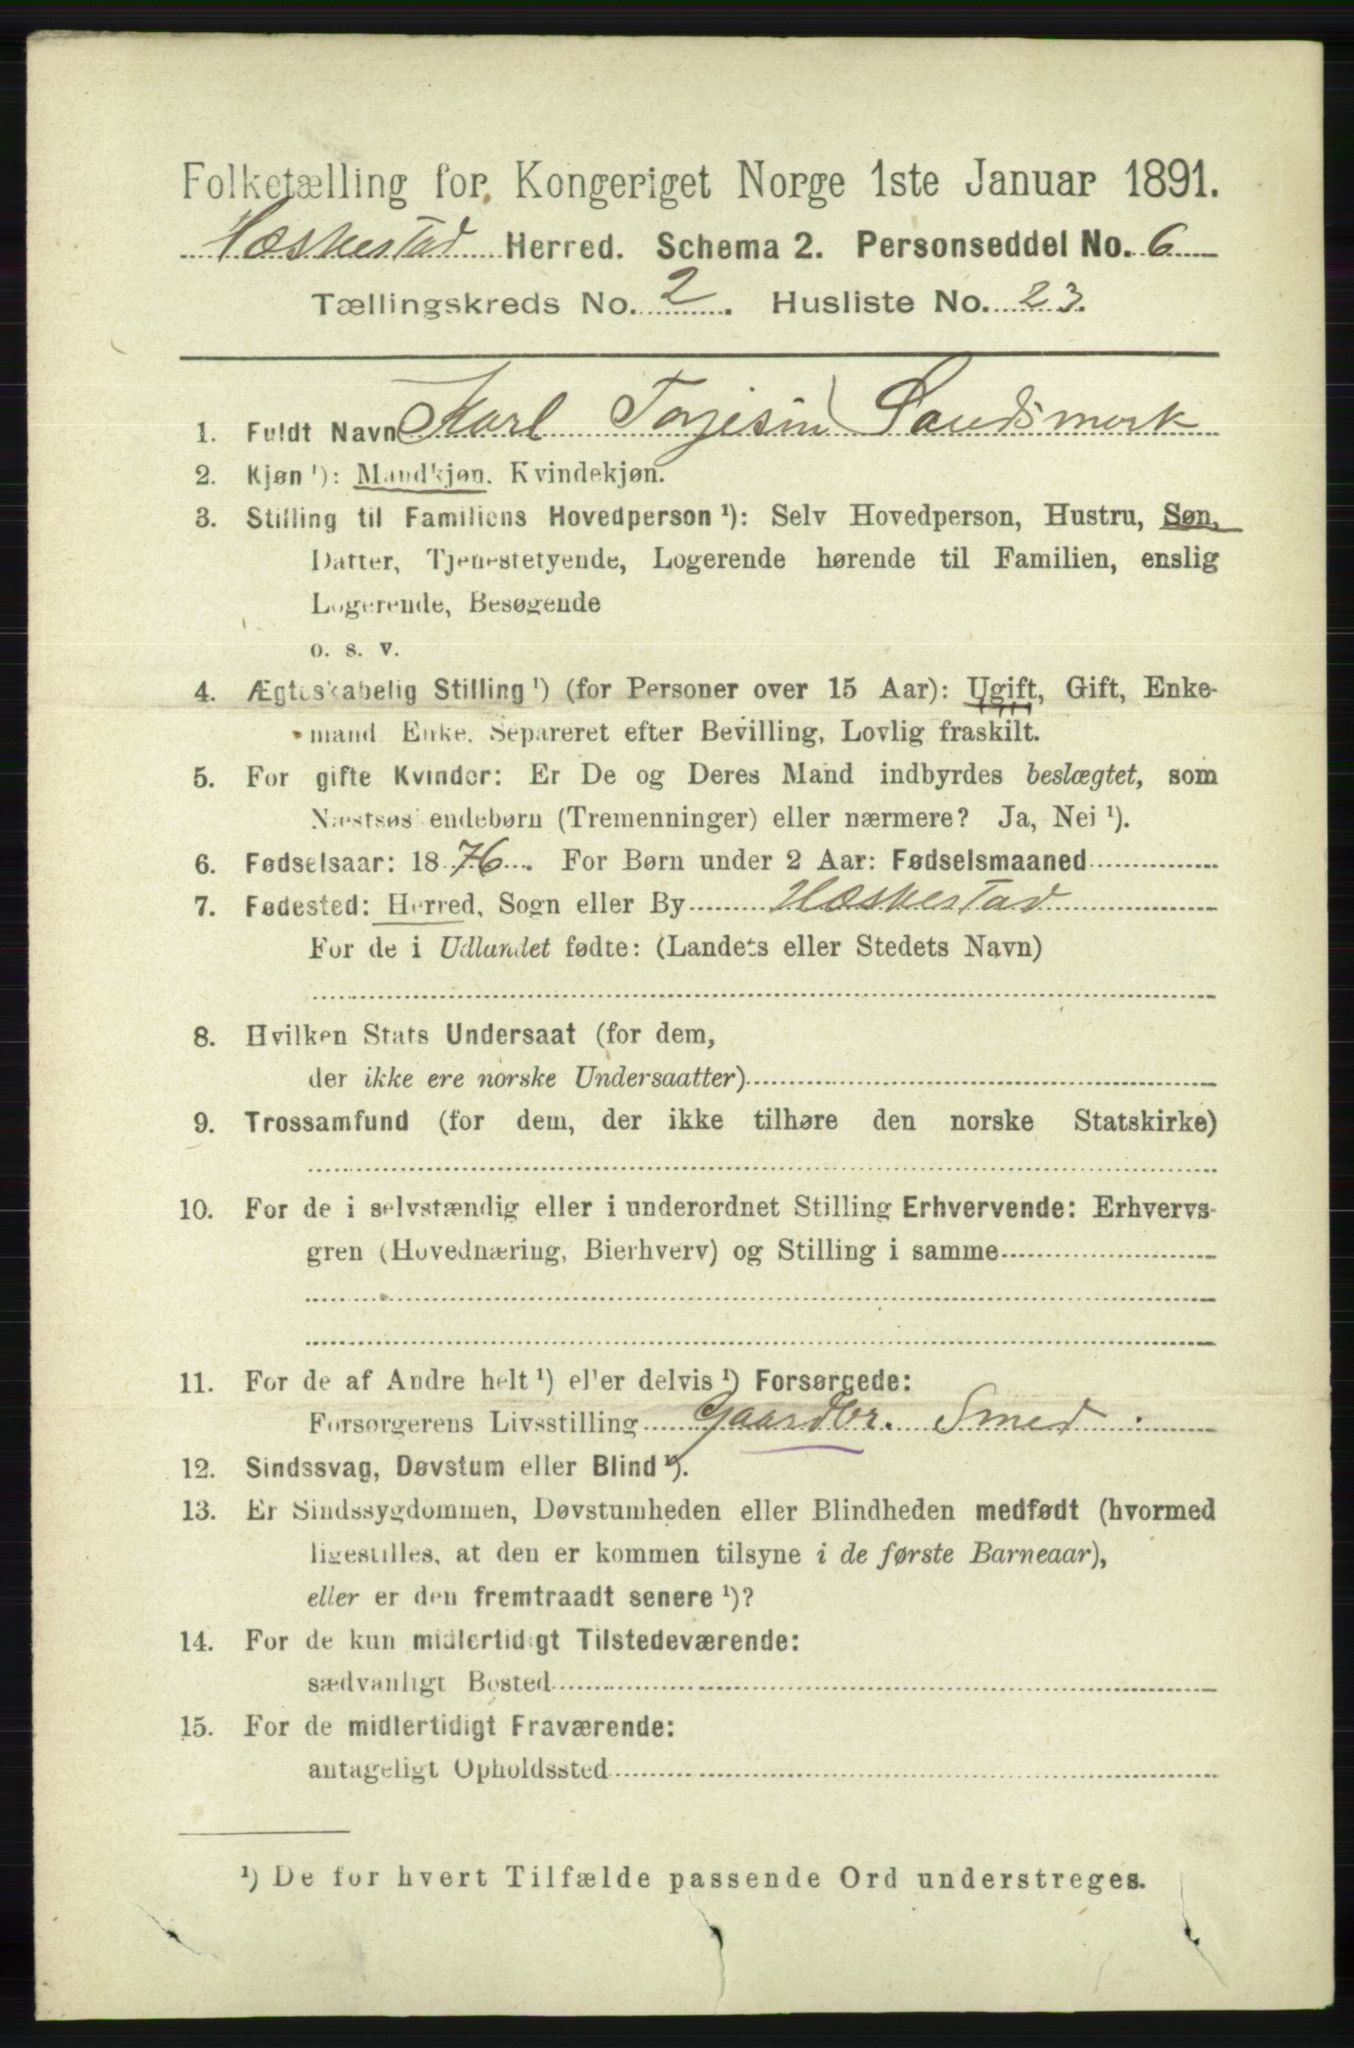 Folketælling for Kongeriget Norge 1ste Januar 1891.
Hæskestad Herred. Schema 2. Personseddel No. 6
Tællingskreds No. 2. Husliste No. 23.
1. Fuldt Navn Karl Torjesin Sandsmork
2. Kjøn ¹): Mandkjøn. Kvindekjøn.
3. Stilling til Familiens Hovedperson ¹): Selv Hovedperson, Hustru, Søn,
Datter, Tjenestetyende, Logerende hørende til Familien, enslig
Logerende, Besøgende
o. s. v.
4. Ægteskabelig Stilling ¹) (for Personer over 15 Aar): Ugift, Gift, Enke-
mand Enke, Separeret efter Bevilling, Lovlig fraskilt.
5. For gifte Kvinder: Er De og Deres Mand indbyrdes beslægtet, som
Næstsøskendebørn (Tremenninger) eller nærmere? Ja, Nei ¹).
6. Fødselsaar: 1876. For Børn under 2 Aar: Fødselsmaaned
7. Fødested: Herred, Sogn eller By Hæskestad
For de i Udlandet fødte: (Landets eller Stedets Navn)
8. Hvilken Stats Undersaat (for dem,
der ikke ere norske Undersaatter)
9. Trossamfund (for dem, der ikke tilhøre den norske Statskirke)
10. For de i selvstændig eller i underordnet Stilling Erhvervende: Erhvervs-
gren (Hovednæring, Bierhverv) og Stilling i samme
11. For de af Andre helt ¹) el'er delvis ¹) Forsørgede:
Forsørgerens Livsstilling Gaardbr. Smed
12. Sindssvag, Døvstum eller Blind ¹).
13. Er Sindssygdommen, Døvstumheden eller Blindheden medfødt (hvormed
ligestilles, at den er kommen tilsyne i de første Barneaar),
eller er den fremtraadt senere ¹)?
14. For de kun midlertidigt Tilstedeværende:
sædvanligt Bosted
15. For de midlertidigt Fraværende:
antageligt Opholdssted
¹) De for hvert Tilfælde passende Ord understreges.